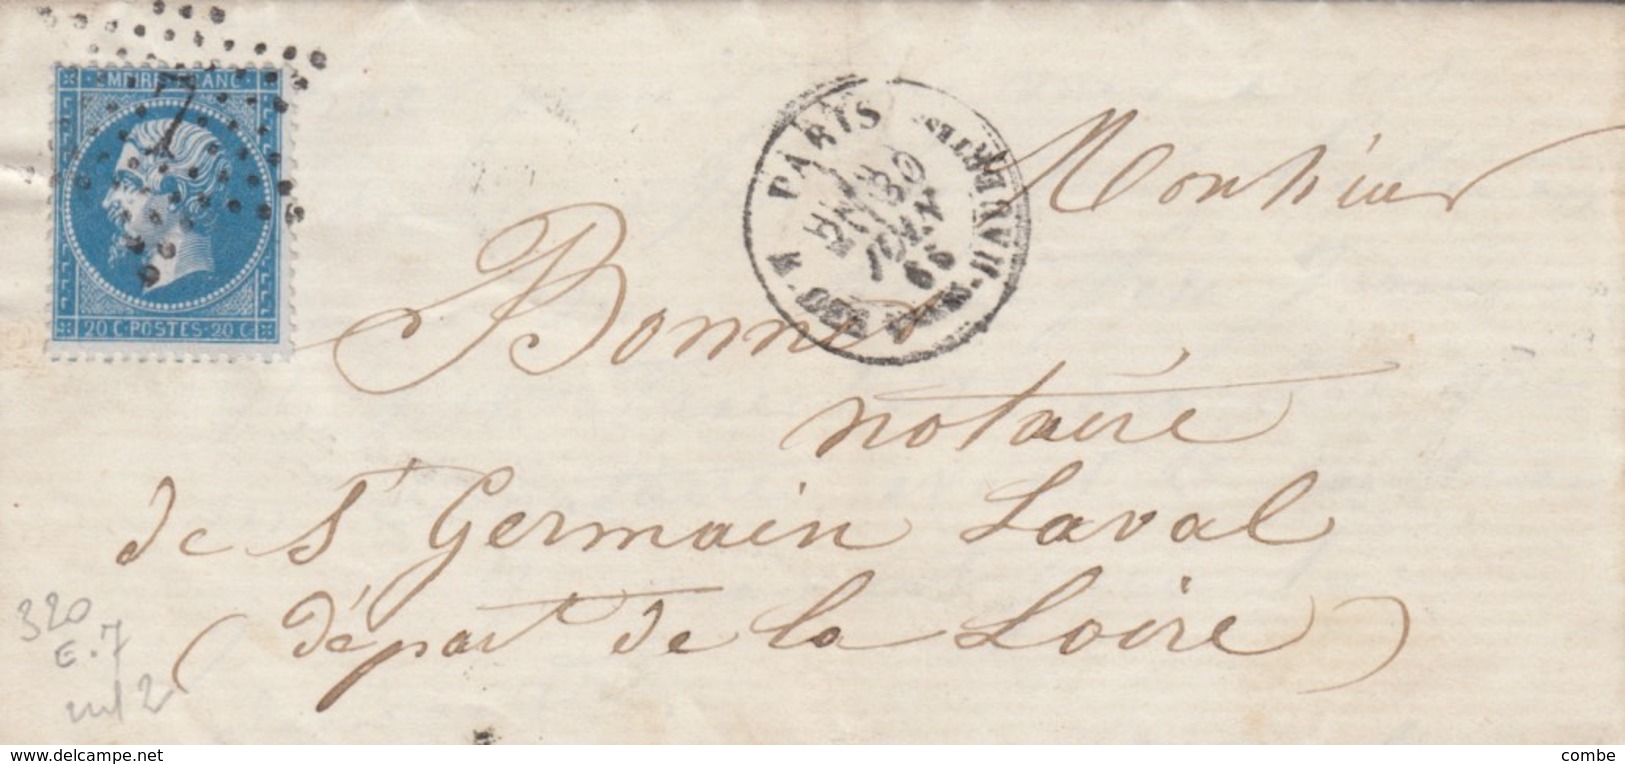 EMPIRE FRANC
7
20 C · POSTES · 20 C
PARIS
JUIN
65
Monsieur
Bonnet
notaire
de St Germain Laval
(départ de la Loire)
320
E.7
ind 2
www.delcampe.net
combe